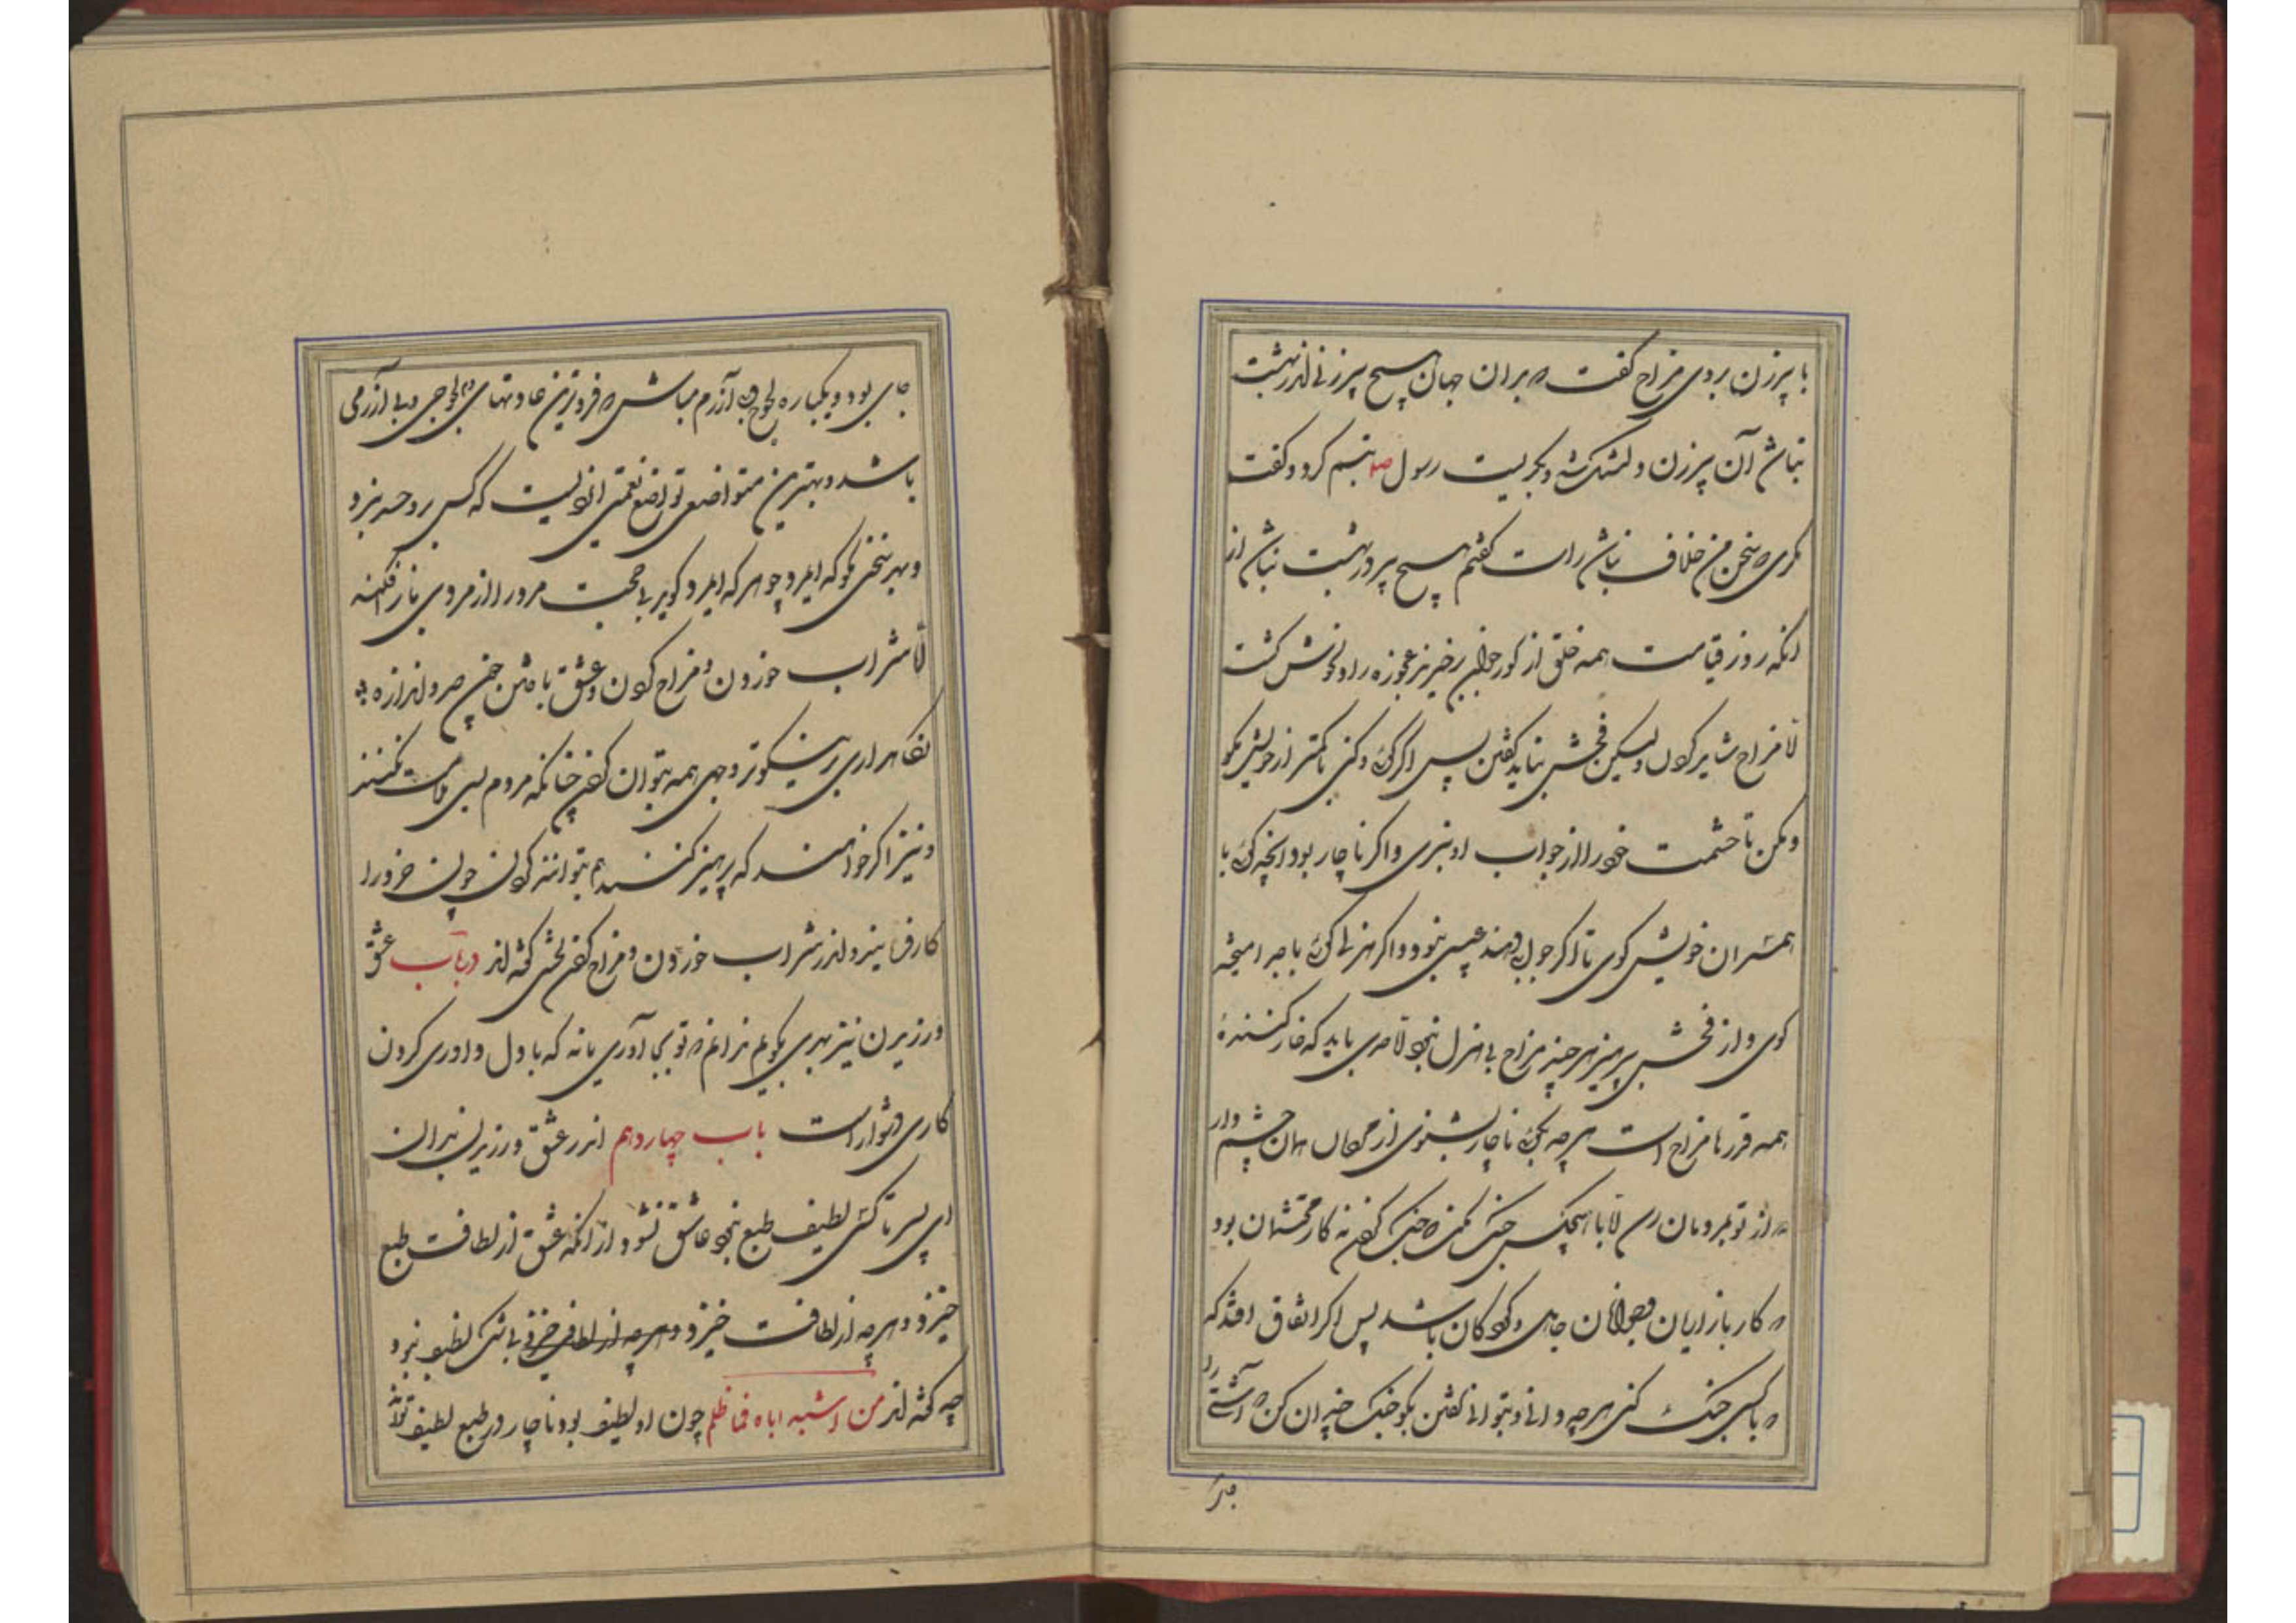 با پیرزن بروی مزاح گفت که بران جهان هیچ پیرزنی اندر بهشت
نباشد آن پیرزن دلتنگ شد و بگریست رسول صلم تبسم کرد و گفت
مگری که سخن من خلاف نباشد راست گفتم هیچ پیر در بهشت نباشد از
انکه روز قیامت همه خلق از کور جوان برخیزند عجوزه را دل خوش کشت
اما مزاح شاید کردن ولیکن فحش نباید گفتن پس اکر کوئی و کنی با کمتر از خویش مکو
و مکن تا حشمت خود را از جواب او نبری و اکر ناچار بود انچه کوئی با
همسران خویش کوی تا اکر جواب دهند عیبی نبود و اکر هزل کوئی با جد امیخته
کوی و از فحش پرهیز هرچند مزاح بی هزل نبود اما حدی باید که خار کننده
همه قدرها مزاح است هر چه بکوئی ناچار بشنوی از مردمان همان چشم دار
که از تو بمردمان رسد اما با هیچکس جنک مکن که جنک کردن نه کار محتشمان بود
که کار بازاریان و جوانان جاهل و کودکان باشد پس اکر اتفاق افتد که
که با کسی جنک کنی هرچه دانی و بتوانی گفتن مکو جنک چندان کن که آشتی را
جای
جای بود و یکباره لجوج و بی آزرم مباش که فروترین عادتهای بد لجوجی و بی آزرمی
باشد و بهترین متواضعی تواضع نعمتی ایزدیست که کس برو حسد نبرد
و بهر سخنی مکو که ای مرد چو هر که ای مرد کوید بی حجت مرد را از مردمی باز افکند
اما شراب خوردن و مزاح کردن و عشق باختن چون حد و اندازه
نکاهداری بر نیکوتر وجهی همه بتوان کردن چنانکه مردم بسی ملامت نکنند
و نیز اکر خواهند که پرهیز کنند هم بتوانند کردن چون خرد را
کار فرمایند و اندر شراب خوردن و مزاح کردن بخشی گفته اند در باب عشق
ورزیدن نیز بهری بکویم ندانم که تو بجای آوری یا نه که با دل داوری کردن
کاری دشوار است باب چهاردهم اندر عشق ورزیدن بدان
ای پسر تا کسی لطیف طبع نبود عاشق نشود از انکه عشق از لطافت طبع
خیزد و هرچه از لطافت خیزد و هرچه از لطافت خیزد بی شک لطیف بود
چه گفته اند من اشبه اباه فما ظلم چون او لطیف بود ناچار در طبع لطیف تواند